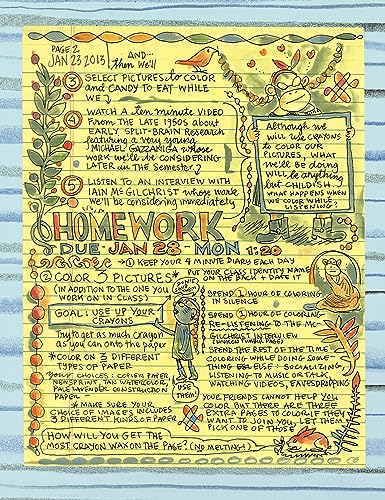 PAGE 2
JAN 23 2013
AND...
then we'll
3 SELECT PICTURES TO COLOR
AND CANDY TO EAT WHILE
WE
4 WATCH A ten minute VIDEO
FROM THE LATE 1950s about
EARLY Split-BRAIN Research
featuring a very young
MICHAEL GAZZANIGA whose
work we'll be CONSIDERING
LATER in THE Semester?
5 LISTEN TO AN INTERVIEW WITH
IAIN McGILCHRIST whose work
we'll be considering immediately
Although we
will use CRAYONS
to COLOR OUR
PICTURES, WHAT
we'll BE DOING
WILL be anything
but CHILDISH.
WHAT HAPPENS WHEN
WE COLOR WHILE
LISTENING?
HOMEWORK
DUE JAN 28 - MON 1:20
1 KEEP YOUR 4 MINUTE DIARY EACH DAY
2 COLOR 3 PICTURES*
(IN ADDITION TO THE ONE YOU
WORK ON IN CLASS)
GOAL: USE UP YOUR
CRAYONS
Try to get as much crayon
as you can onto the paper
*COLOR ON 3 DIFFERENT
TYPES OF PAPER
YOUR CHOICES: COPIER PAPER
NEWSPRINT, TAN WATERCOLOR,
PALE LAVENDER CONSTRUCTION
PAPER
* MAKE SURE YOUR
CHOICE OF IMAGES INCLUDES
3 DIFFERENT KINDS OF PAPER
HOW WILL YOU GET THE
MOST CRAYON WAX ON THE PAGE? (NO MELTING!)
USE
THEM!
* PUT YOUR CLASS IDENTITY NAME
ON THE BACK + DATE IT
SPEND 1 HOUR OF COLORING
IN SILENCE
SPEND 1 HOUR OF COLORING
RE-LISTENING TO THE Mc-
GILCHRIST INTERVIEW
SPEND THE REST OF THE TIME
COLORING WHILE DOING SOME
THING ELSE! SOCIALIZING
LISTENING TO MUSIC OR TALK,
WATCHING VIDEOS, EAVESDROPPING
YOUR FRIENDS CANNOT HELP YOU
COLOR BUT THERE ARE THREE
EXTRA PAGES TO COLOR IF THEY
WANT TO JOIN YOU. LET THEM
PICK ONE OF THOSE